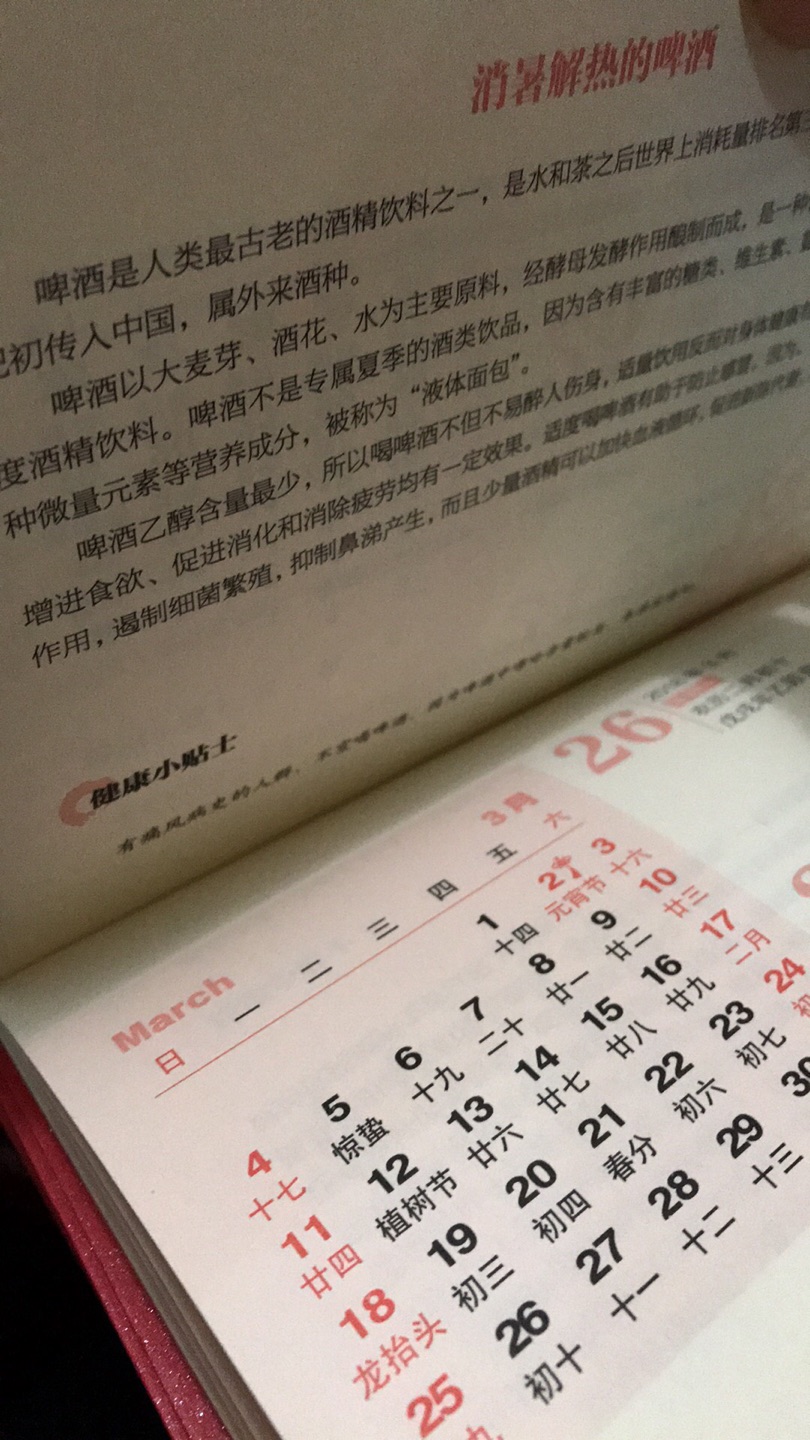 消暑解热的啤酒
啤酒是人类最古老的酒精饮料之一，是水和茶之后世界上消耗量排名第三
纪初传入中国，属外来酒种。
啤酒以大麦芽、酒花、水为主要原料，经酵母发酵作用酿制而成，是一种
度酒精饮料。啤酒不是专属夏季的酒类饮品，因为含有丰富的糖类、维生素、
种微量元素等营养成分，被称为“液体面包”。
啤酒乙醇含量最少，所以喝啤酒不但不易醉人伤身，适量饮用反而对身体健康有
增进食欲、促进消化和消除疲劳均有一定效果。适度喝啤酒有助于防止感冒，因为，
作用，遏制细菌繁殖，抑制鼻涕产生，而且少量酒精可以加快血液循环，促进新陈代谢，
健康小贴士
有痛风病史的人群，不宜喝啤酒，
26
March 3月
日 一 二 三 四 五 六
1 2 3
十四 元宵节 十六
4 5 6 7 8 9 10
十七 惊蛰 十九 二十 廿一 廿二 廿三
11 12 13 14 15 16 17
廿四 植树节 廿六 廿七 廿八 廿九 二月
18 19 20 21 22 23 24
龙抬头 初三 初四 春分 初六 初七 初
25 26 27 28 29 30
九 初十 十一 十二 十三